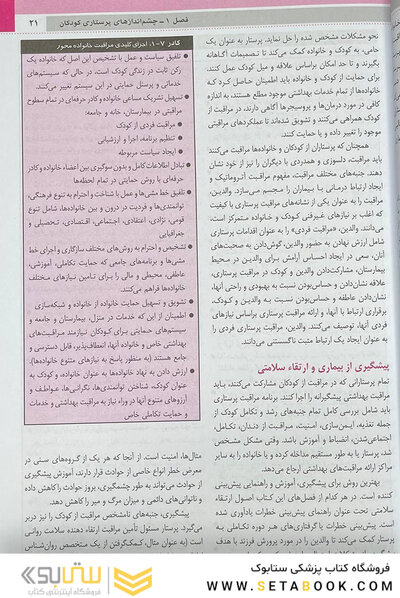 فصل ۱ ــ چشم‌اندازهای پرستاری کودکان
۲۱
نحو مشکلات مشخص شده را حل نماید. پرستار به عنوان یک
حامی، به کودک و خانواده کمک می‌کند تا تصمیمات آگاهانه
بگیرند و تا حد امکان براساس علاقه و میل کودک عمل کنند.
برای حمایت از کودک و خانواده باید اطمینان حاصل کرد که
خانواده‌ها از تمام خدمات بهداشتی موجود مطلع هستند، به اندازه
کافی در مورد درمان‌ها و پروسیجرها آگاهی دارند، در مراقبت از
کودک همراهی می‌کنند و تشویق شده‌اند تا عملکردهای مراقبتی
موجود را تغییر داده و یا حمایت کنند.
همچنان که پرستاران از کودکان و خانواده‌ها مراقبت می‌کنند
باید مراقبت، دلسوزی و همدردی با دیگران را نیز از خود نشان
دهند. جنبه‌های مختلف مراقبت، مفهوم مراقبت آتروماتیک و
ایجاد ارتباط درمانی با بیماران را مجسم می‌سازد. والدین،
مراقبت را به عنوان یکی از نشانه‌های مراقبت پرستاری با کیفیت
که اغلب بر نیازهای غیرفنی کودک و خانواده متمرکز است،
می‌دانند. والدین، «مراقبت فردی» را به عنوان اقدامات پرستاری
شامل ارزش نهادن به حضور والدین، گوش‌دادن به صحبت‌های
آنان، سعی در ایجاد احساس آرامش برای والدین در محیط
بیمارستان، مشارکت‌دادن والدین و کودک در مراقبت پرستاری،
علاقه نشان‌دادن و حساس‌بودن نسبت به بهبودی و راحتی آنها،
نشان‌دادن عاطفه و حساس‌بودن نسبت به والدین و کودک،
برقراری ارتباط با آنها، و ارائه مراقبت پرستاری براساس نیازهای
فردی آنها، توصیف می‌کنند. والدین، مراقبت پرستاری فردی را
به عنوان ایجاد یک ارتباط مثبت ناگسستنی می‌دانند.
پیشگیری از بیماری و ارتقاء سلامتی
تمام پرستارانی که در مراقبت از کودکان مشارکت می‌کنند، باید
مراقبت بهداشتی پیشگیرانه را اجرا کنند. برنامه مراقبت پرستاری
باید شامل بررسی کامل تمام جنبه‌های رشد و تکامل کودک از
جمله تغذیه، ایمن‌سازی، امنیت، مراقبت از دندان، تکامل،
اجتماعی‌شدن، انضباط و آموزش باشد. وقتی مشکل مشخص
شد، پرستار یا به طور مستقیم مداخله کرده و یا خانواده را به سایر
مراکز ارائه مراقبت‌های بهداشتی ارجاع می‌دهد.
بهترین روش برای پیشگیری، آموزش و راهنمایی پیش‌بینی
کننده است. در هر کدام از فصل‌های این کتاب اصول ارتقاء
سلامتی تحت عنوان راهنمای پیش‌بینی خطرات یادآوری شده
است. پیش‌بینی خطرات یا گرفتاری‌های هر دوره تکاملی به
پرستار کمک می‌کند تا والدین را در مورد پرورش فرزند با هدف
کادر ۷-۱. اجزای کلیدی مراقبت خانواده محور
● تلفیق سیاست و عمل با تشخیص این اصل که خانواده یک
رکن ثابت در زندگی کودک است، در حالی که سیستم‌های
خدماتی و پرسنل حمایتی در این سیستم تغییر می‌کنند.
● تسهیل تشریک مساعی خانواده و کادر حرفه‌ای در تمام سطوح
مراقبتی در بیمارستان، خانه و جامعه:
مراقبت فردی از کودک
تنظیم برنامه، اجرا و ارزشیابی
ایجاد سیاست مربوطه
● تبادل اطلاعات کامل و بدون سوگیری بین اعضاء خانواده و کادر
حرفه‌ای با روش حمایتی در تمام لحظه‌ها
● تلفیق خط مشی‌ها و عمل با شناخت و احترام به تنوع فرهنگی،
توانمندی‌ها و فردیت در درون و بین خانواده‌ها، شامل تنوع
قومی، نژادی، اعتقادی، اجتماعی، اقتصادی، تحصیلی و
جغرافیایی
● تشخیص و احترام به روش‌های مختلف سازگاری و اجرای خط
مشی‌ها و برنامه‌های جامعی که حمایت تکاملی، آموزشی،
عاطفی، محیطی و مالی را برای تامین نیازهای مختلف
خانواده‌ها فراهم می‌کنند.
● تشویق و تسهیل حمایت خانواده از خانواده و شبکه‌سازی
● اطمینان از این که خدمات در منزل، بیمارستان و جامعه و
سیستم‌های حمایتی برای کودکان نیازمند مراقبت‌های
بهداشتی خاص و خانواده آنها، انعطاف‌پذیر، قابل دسترسی و
جامع هستند (به منظور پاسخ به نیازهای متنوع خانواده‌ها).
● ارزش دادن به نهاد خانواده‌ها به عنوان خانواده، و کودکان به
عنوان کودک، شناختن توانمندی‌ها، نگرانی‌ها، عواطف و
آرزوهای متنوع آنها در وراء نیاز به مراقبت بهداشتی و خدمات
و حمایت تکاملی خاص
مثال‌ها، امنیت است. از آنجا که هر یک از گروه‌های سنی در
معرض خطر انواع خاصی از حوادث قرار دارند، آموزش پیشگیری
از حوادث می‌تواند به طور چشمگیری، بروز حوادث را کاهش داده
و ناتوانی‌های دائمی و میزان مرگ و میر را کاهش دهد.
پیشگیری، جنبه‌های نامشخص مراقبت از کودک را نیز دربر
می‌گیرد. پرستار مسئول تأمین مراقبت ارتقاء دهنده سلامت روانی
است (به عنوان مثال، کمک‌گرفتن از یک متخصص روان‌شناس
ستابوک
فروشگاه اینترنتی کتاب
فروشگاه کتاب پزشکی ستابوک
WWW.SETABOOK.COM